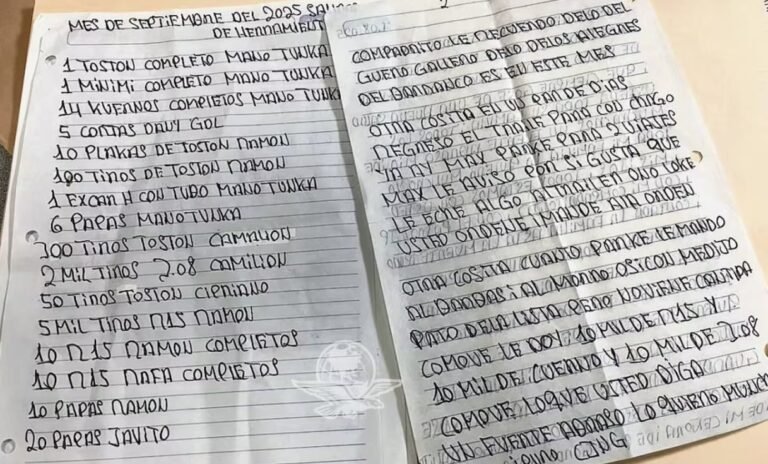 MES DE SEPTIEMBRE DEL 2025
DE HERRAMIENT
1 TOSTON COMPLETO MANO TUNKA
1 MINIMI COMPLETO MANO TUNKA
14 KUERNOS COMPLETOS MANO TUNKA
5 CORTAS DAVY GOL
10 PLAKAS DE TOSTON RAMON
100 TIROS DE TOSTON RAMON
1 EXCAR H CON TUBO MANO TUNKA
6 PAPAS MANO TUNKA
300 TIROS TOSTON CAMALION
2 MIL TIROS 7.08 CAMILION
50 TIROS TOSTON CIPRIANO
5 MIL TIROS R15 RAMON
10 R15 RAMON COMPLETOS
10 R15 RAFA COMPLETOS
10 PAPAS RAMON
20 PAPAS JAVITO
2
COMPADRITO LE RECUERDO DELO DEL
GUERO GALLERO DELO DELOS ALEGRES
DEL BARRANCO ES EN ESTE MES
OTRA COSITA EN UN PAR DE DIAS
REGRESO EL TRAILE PARA CON CHAGO
YA AY MAX PARKE PARA 2 VIAJES
MAX LE AVISO POR SI GUSTA QUE
LE ECHE ALGO A TRAILER OLO KE
USTED ORDENE I MANDE A LA ORDEN
OTRA COSITA CUANTO PARKE LE MANDO
AL BARBAS I AL MORRO OSICON MEDIO
PATO DELA LISTA PERO NO VIENE CANTIDA
COMOVE LE DOY 10 MIL DE R15 Y
10 MIL DE CUERNO Y 10 MIL DE 7.08
COMOVE LO QUE USTED DIGA
UN FUERTE ABRASO LO QUIERO MUCHO
CJNG